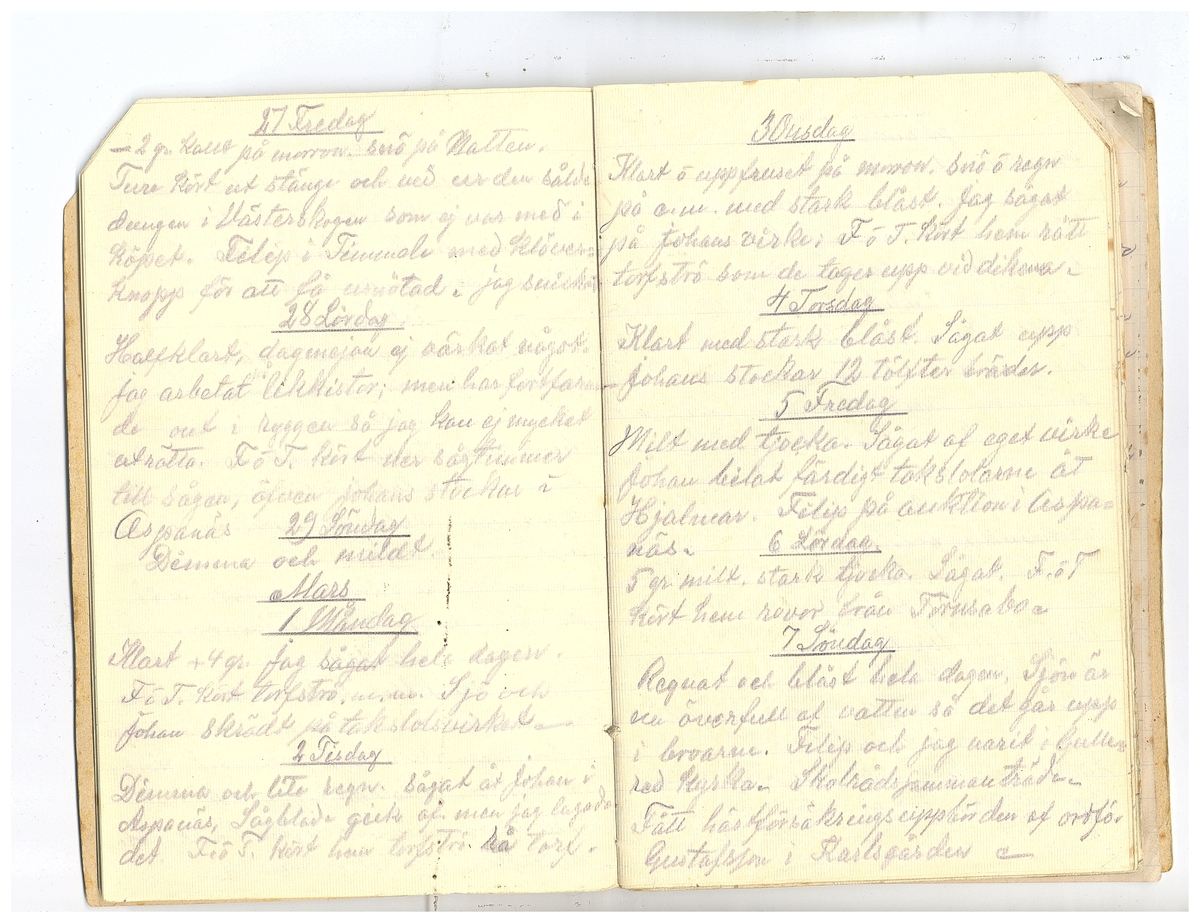 27 Fredag
-2 gr. kallt på morron. snö på Natten.
Ture kört ut stänge och ved ur den sålda
dungen i Västerskogen som ej var med i
köpet. Filip i Timmele med klöver=
knopp för att få urnötad. jag snickr
28 Lördag
Halfklart, dagmejan ej värkat något.
jag arbetat likkistor; men har fortfaran
de ont i ryggen så jag kan ej mycket
uträtta. F ö T. kört ner sågtimmer
till sågen, äfven johans stockar i
Aspanäs 29 Söndag
Dimma och mildt.
Mars
1 Måndag
Klart +4 gr. jag sågat hela dagen.
F ö T. kört torfströ. m.m. Sjö och
Johan skrädt på takstolsvirket
2 Tisdag
Dimma och lite regn. sågat åt Johan i
Aspanäs, Sågblade gick af men jag lagade
det. F ö T. kört hem torfströ. torf.
3 Onsdag
Klart ö uppfruset på morron. snö ö regn
på e.m. med stark blåst. Jag sågat
på Johans virke; F ö T. kört hem rått
torfströ som de tager upp vid dikena.
4 Torsdag
Klart med stark blåst. Sågat upp
Johans stockar 12 tölfter bräder.
5 Fredag
Milt med tjocka. Sågat af eget virke
Johan bilat färdigt takstolarne åt
Hjalmar. Filip på auktion i Aspa=
näs. 6 Lördag.
5 gr. milt. stark tjocka. Sågat. F. ö T
kört hem rovor från Tornsabo
7 Söndag
Regnat och blåst hela dagen. Sjön är
nu överfull af vatten så det går upp
i broarne. Filip och jag varit i Gullered
Kyrka. Skolrådssammanträde.
Fått hästförsäkringsuppbörden af ordfö.
Gustafsson i Karlsgården